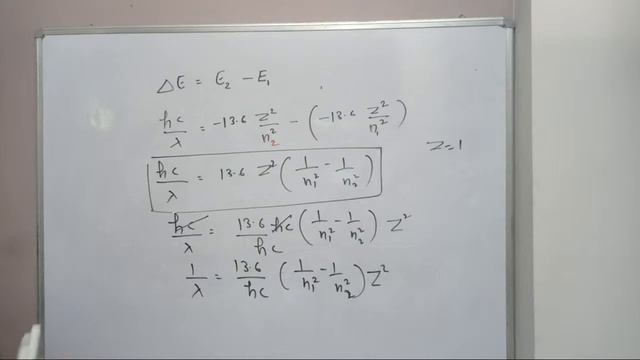 ΔE = E₂ - E₁
hc/λ = -13.6 Z²/n₂² - (-13.6 Z²/n₁²)
Z=1
hc/λ = 13.6 Z² (1/n₁² - 1/n₂²)
hc/λ = 13.6 hc/hc (1/n₁² - 1/n₂²) Z²
1/λ = 13.6/hc (1/n₁² - 1/n₂²) Z²